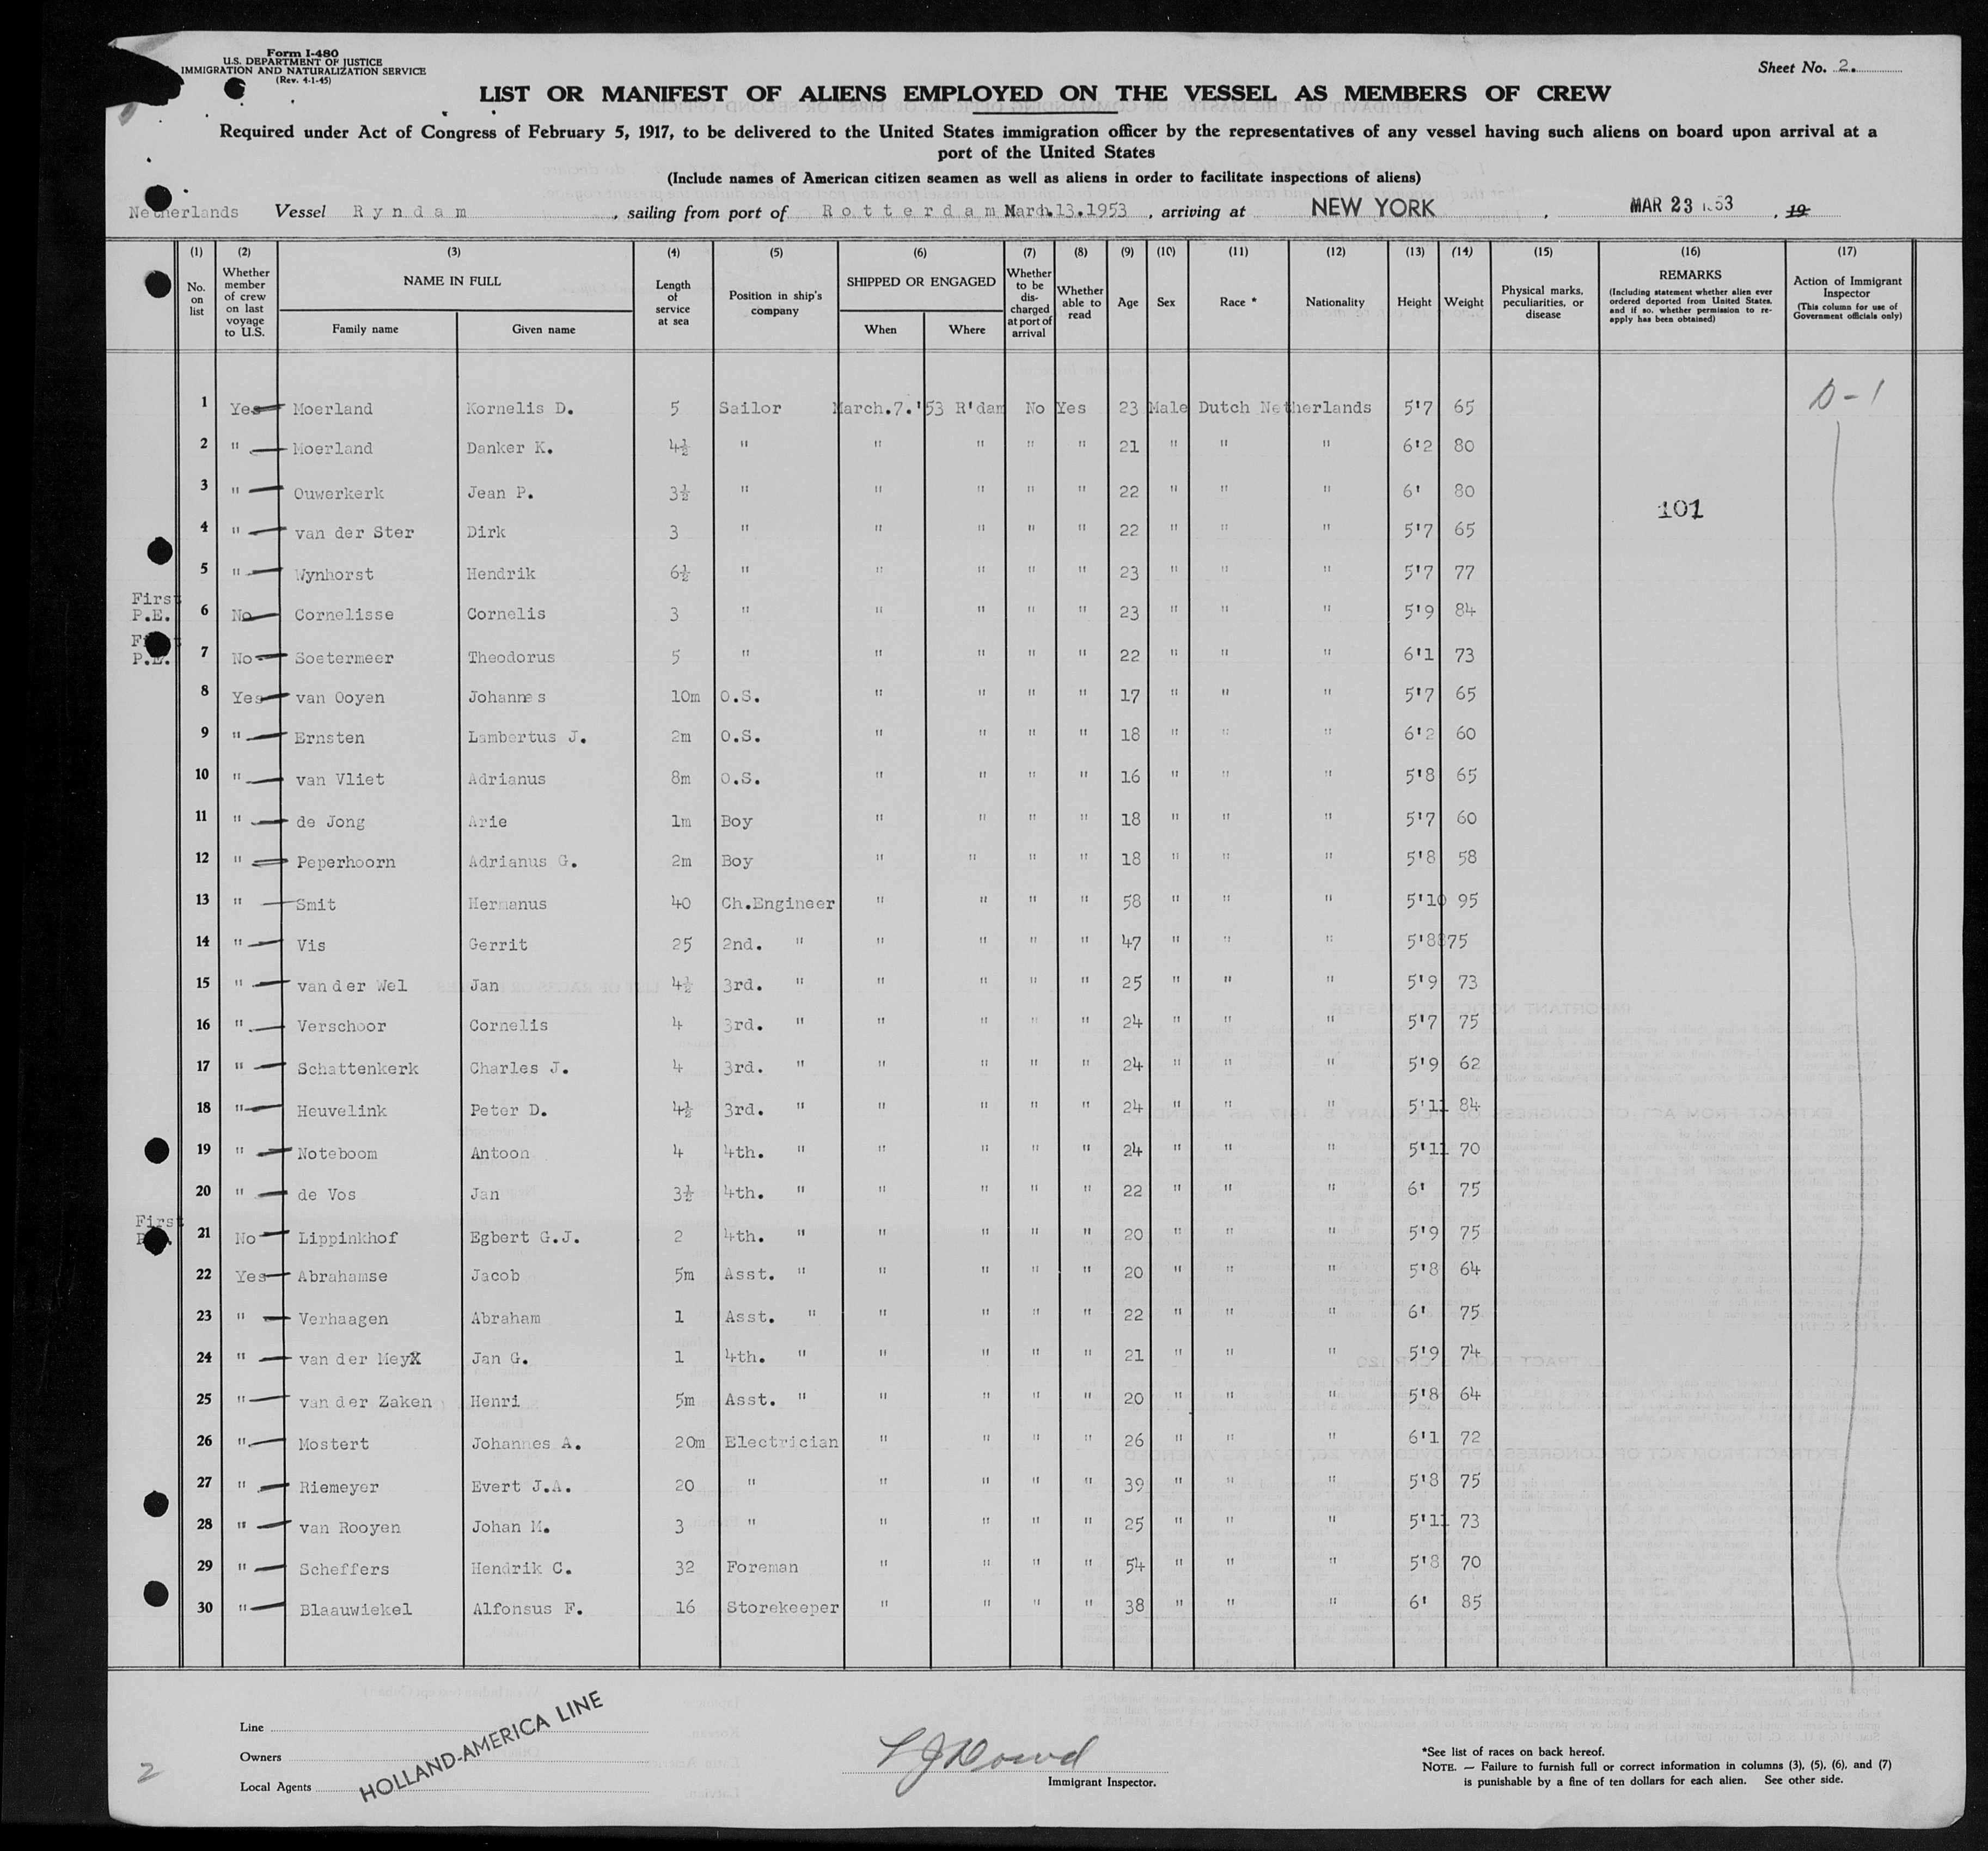 Form I-480
U.S. DEPARTMENT OF JUSTICE
IMMIGRATION AND NATURALIZATION SERVICE
(Rev. 4-1-45)
Sheet No. 2.
LIST OR MANIFEST OF ALIENS EMPLOYED ON THE VESSEL AS MEMBERS OF CREW
Required under Act of Congress of February 5, 1917, to be delivered to the United States immigration officer by the representatives of any vessel having such aliens on board upon arrival at a
port of the United States
(Include names of American citizen seamen as well as aliens in order to facilitate inspections of aliens)
Netherlands Vessel Ryndam, sailing from port of Rotterdam March.13.1953, arriving at NEW YORK, MAR 23 1953, 19
(1) (2) (3) (4) (5) (6) (7) (8) (9) (10) (11) (12) (13) (14) (15) (16) (17)
No. on list Whether member of crew on last voyage to U.S. NAME IN FULL Family name Given name Length of service at sea Position in ship's company SHIPPED OR ENGAGED When Where Whether to be discharged at port of arrival Whether able to read Age Sex Race * Nationality Height Weight Physical marks, peculiarities, or disease REMARKS (Including statement whether alien ever ordered deported from United States, and if so, whether permission to reapply has been obtained) Action of Immigrant Inspector (This column for use of Government officials only)
1 Yes Moerland Kornelis D. 5 Sailor March.7.'53 R'dam No Yes 23 Male Dutch Netherlands 5'7 65 D-1
2 " Moerland Danker K. 4½ " " " " " 21 " " " 6'2 80
3 " Ouwerkerk Jean P. 3½ " " " " " 22 " " " 6' 80
101
4 " van der Ster Dirk 3 " " " " " 22 " " " 5'7 65
5 " Wynhorst Hendrik 6½ " " " " " 23 " " " 5'7 77
First P.E. 6 No Cornelisse Cornelis 3 " " " " " 23 " " " 5'9 84
First P.E. 7 No Soetermeer Theodorus 5 " " " " " 22 " " " 6'1 73
8 Yes van Ooyen Johannes 10m O.S. " " " " 17 " " " 5'7 65
9 " Ernsten Lambertus J. 2m O.S. " " " " 18 " " " 6'2 60
10 " van Vliet Adrianus 8m O.S. " " " " 16 " " " 5'8 65
11 " de Jong Arie 1m Boy " " " " 18 " " " 5'7 60
12 " Peperhoorn Adrianus G. 2m Boy " " " " 18 " " " 5'8 58
13 " Smit Hermanus 40 Ch.Engineer " " " " 58 " " " 5'10 95
14 " Vis Gerrit 25 2nd. " " " " " 47 " " " 5'8 75
15 " van der Wel Jan 4½ 3rd. " " " " " 25 " " " 5'9 73
16 " Verschoor Cornelis 4 3rd. " " " " " 24 " " " 5'7 75
17 " Schattenkerk Charles J. 4 3rd. " " " " " 24 " " " 5'9 62
18 " Heuvelink Peter D. 4½ 3rd. " " " " " 24 " " " 5'11 84
19 " Noteboom Antoon 4 4th. " " " " " 24 " " " 5'11 70
20 " de Vos Jan 3½ 4th. " " " " " 22 " " " 6' 75
First 21 No Lippinkhof Egbert G.J. 2 4th. " " " " " 20 " " " 5'9 75
22 Yes Abrahamse Jacob 5m Asst. " " " " " 20 " " " 5'8 64
23 " Verhaagen Abraham 1 Asst. " " " " " 22 " " " 6' 75
24 " van der Mey Jan G. 1 4th. " " " " " 21 " " " 5'9 74
25 " van der Zaken Henri 5m Asst. " " " " " 20 " " " 5'8 64
26 " Mostert Johannes A. 20m Electrician " " " " 26 " " " 6'1 72
27 " Riemeyer Evert J.A. 20 " " " " " 39 " " " 5'8 75
28 " van Rooyen Johan M. 3 " " " " " 25 " " " 5'11 73
29 " Scheffers Hendrik C. 32 Foreman " " " " 54 " " " 5'8 70
30 " Blaauwiekel Alfonsus F. 16 Storekeeper " " " " 38 " " " 6' 85
Line
Owners
Local Agents
HOLLAND-AMERICA LINE
2
L J Dowd
Immigrant Inspector.
*See list of races on back hereof.
NOTE. — Failure to furnish full or correct information in columns (3), (5), (6), and (7)
is punishable by a fine of ten dollars for each alien. See other side.